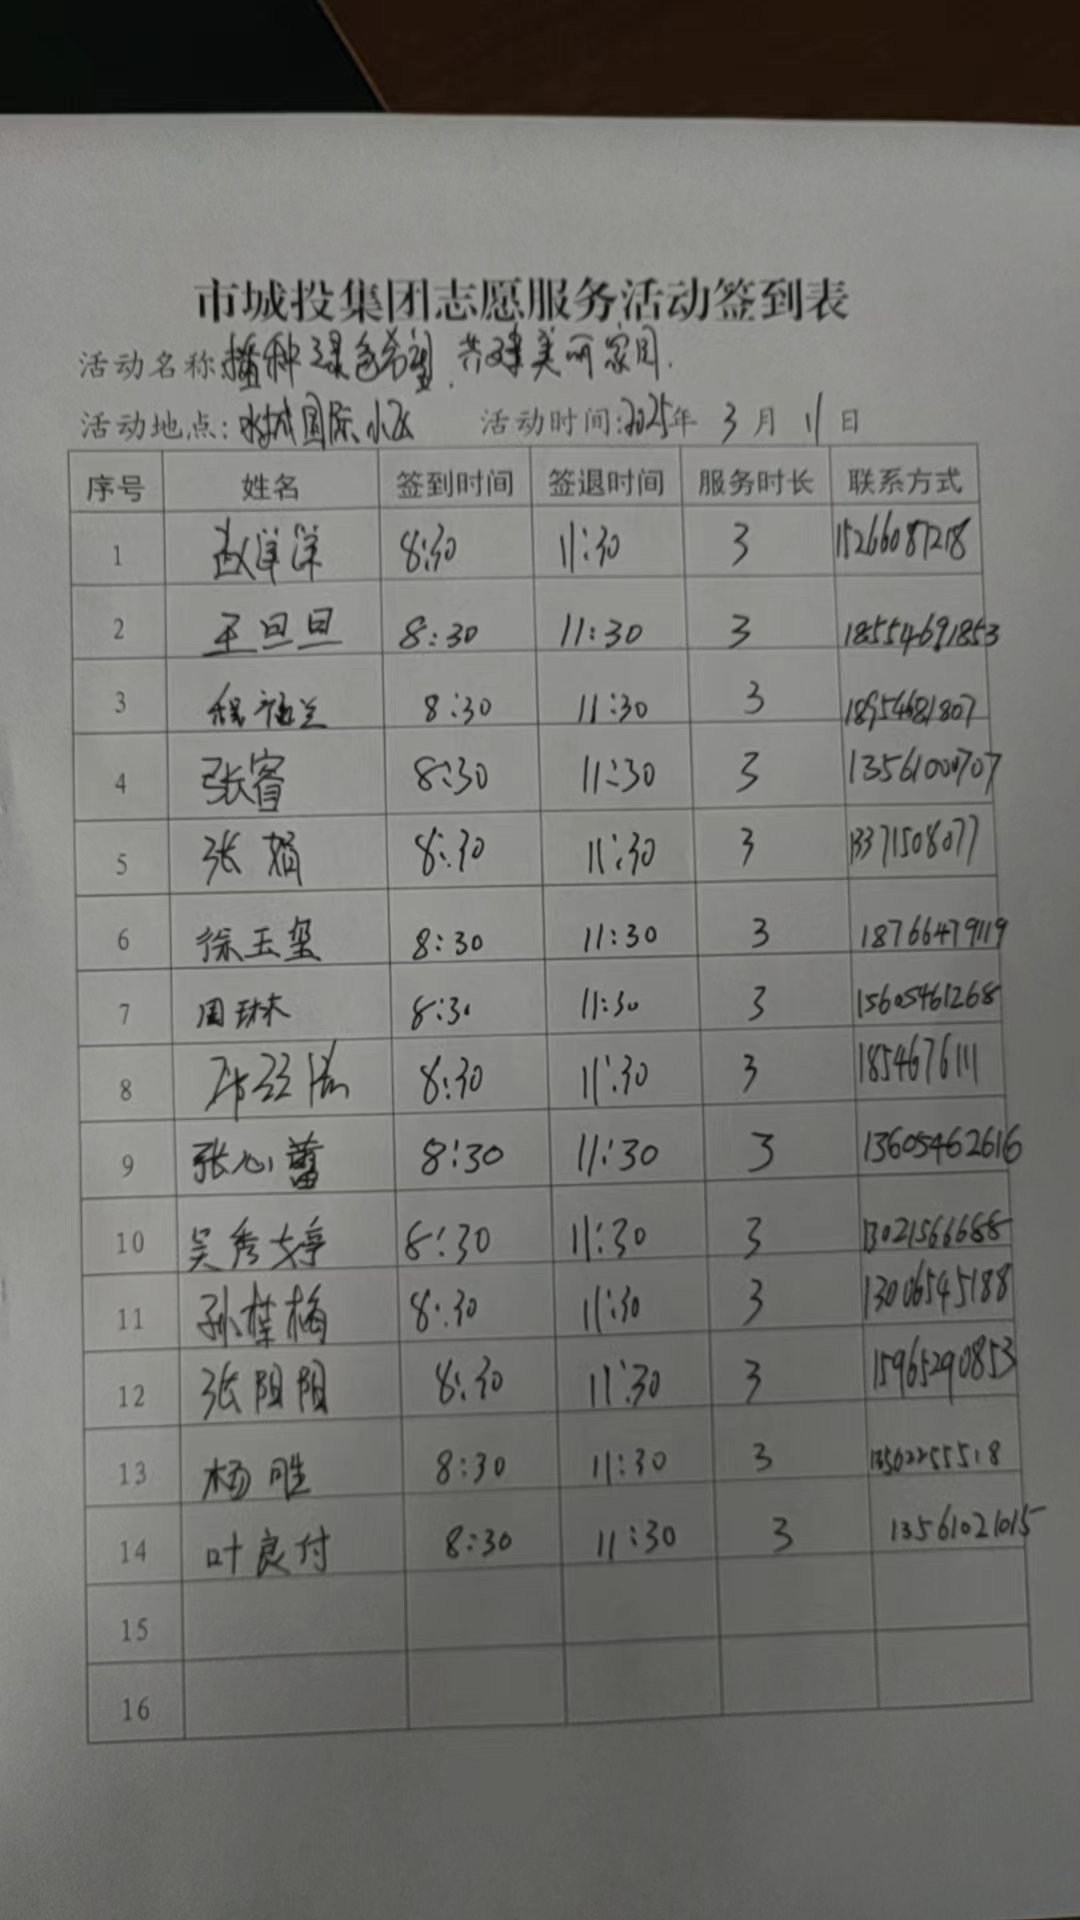 市城投集团志愿服务活动签到表
活动名称:播种绿色希望、共建美丽家园.
活动地点:水城国际小区 活动时间:2025年 3月 11日
序号 姓名 签到时间 签退时间 服务时长 联系方式
1 赵洋洋 8:30 11:30 3 15266087218
2 王旦旦 8:30 11:30 3 18554691853
3 8:30 11:30 3 18954681807
4 张睿 8:30 11:30 3 13561000707
5 张娟 8:30 11:30 3 13371508077
6 徐玉玺 8:30 11:30 3 18766479119
7 周琳 8:30 11:30 3 15605461268
8 8:30 11:30 3 1854676111
9 张心蕾 8:30 11:30 3 13605462616
10 吴秀婷 8:30 11:30 3 13021566688
11 孙桂梅 8:30 11:30 3 13006545188
12 张阳阳 8:30 11:30 3 15965290853
13 杨胜 8:30 11:30 3 13502255518
14 叶良付 8:30 11:30 3 13561021015
15
16